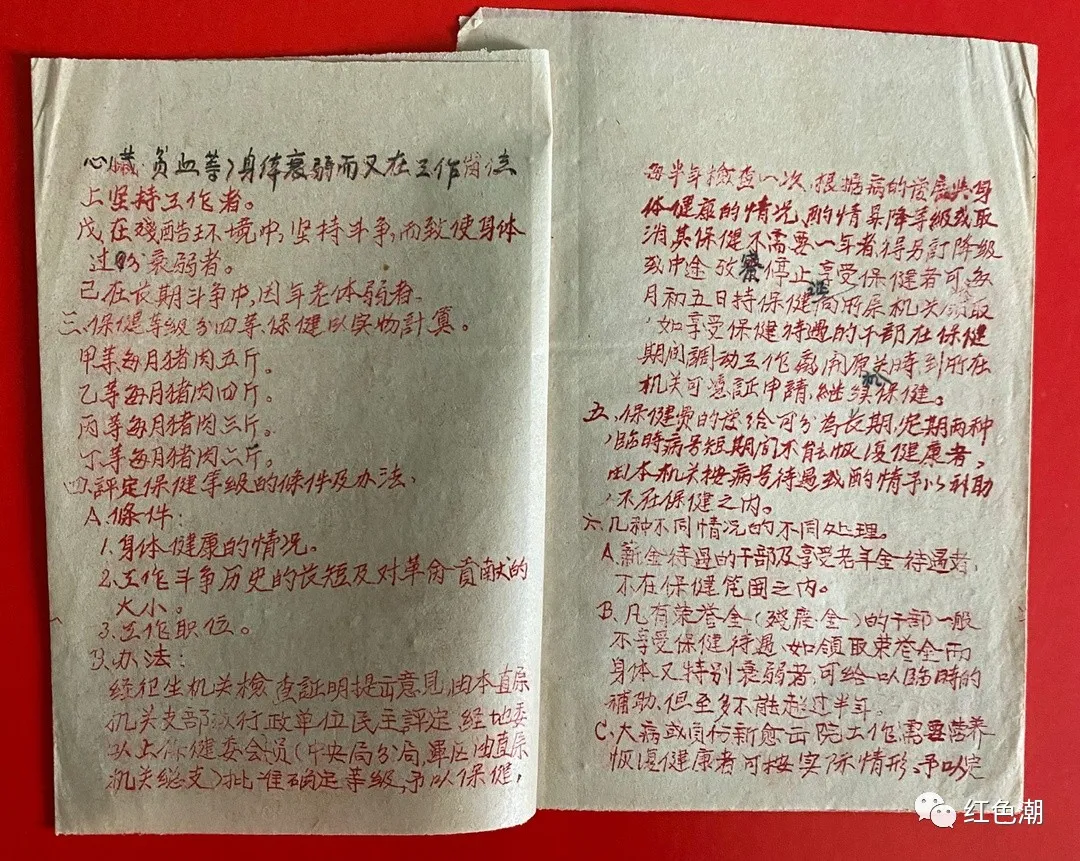 心臟、貧血等)身体衰弱而又在工作崗位
上坚持工作者。
戊、在殘酷环境中,坚持斗争,而致使身体
过分衰弱者。
己、在長期斗争中,因年老体弱者。
三、保健等級分四等,保健以实物計算。
甲等每月猪肉五斤。
乙等每月猪肉四斤。
丙等每月猪肉三斤。
丁等每月猪肉二斤。
四、評定保健等級的條件及办法、
A、條件:
1、身体健康的情况。
2、工作斗争历史的長短及对革命貢献的
大小。
3、工作职位。
B、办法:
經衛生机关檢查証明提出意見,由本直屬
机关支部或行政單位民主評定,經地委
以上保健委会員(中央局分局軍区由直屬
机关总支)批准確定等級,予以保健,
每半年檢查一次,根據病的發展其身
体健康的情况,酌情昇降等級或取
消其保健不需要一年者,得另訂降級
或中途致 停止享受保健者可,每
月初五日持保健証向所屬机关領取
,如享受保健待遇的干部在保健
期间調动工作离开原机关時到所在
机关可憑証申請,繼续保健。
五、保健費的發給可分為長期,定期两种
,臨時病号短期间不能恢復健康者,
由本机关按病号待遇或酌情予以补助
,不在保健之内。
六、几种不同情况的不同处理。
A、薪金待遇的干部及享受老年金待遇者,
不在保健范围之内。
B、凡有荣誉金(殘廢金)的干部一般
不享受保健待遇,如領取荣誉金而
身体又特别衰弱者,可給以臨時的
補助,但至多不能超过半年。
C、大病或因伤新愈出院工作需要营养
恢復健康者可按实际情形,予以定
红色潮